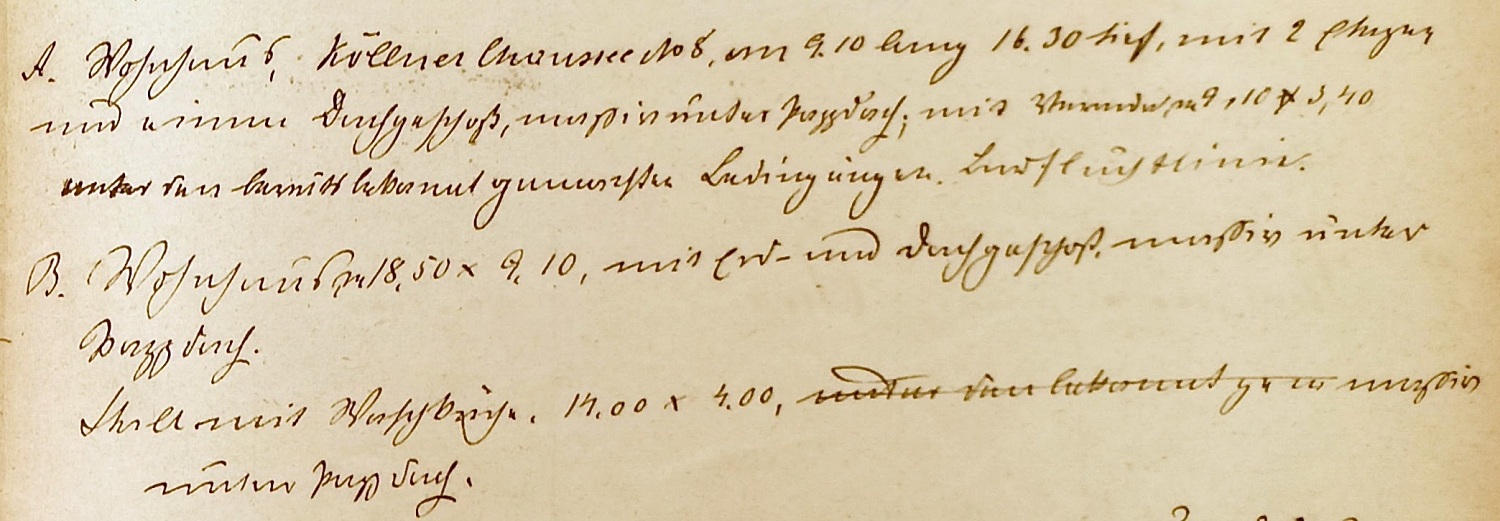 A. Wohnhaus, Köllner Chaussee No 8, von 9.10 lang 16.30 tief, mit 2 Etagen
und einem Dachgeschoß, massiv unter Pappdach; mit Veranda, von 9,10 x 3,40
unter den bereits bekannt gemachten Bedingungen. Baufluchtlinie.
B. Wohnhaus, von 18,50 x 9,10, mit Erd- und Dachgeschoß, massiv unter
Pappdach.
Stall mit Waschküche. 14.00 x 4.00, unter den bekannt gem massiv
unter Pappdach.